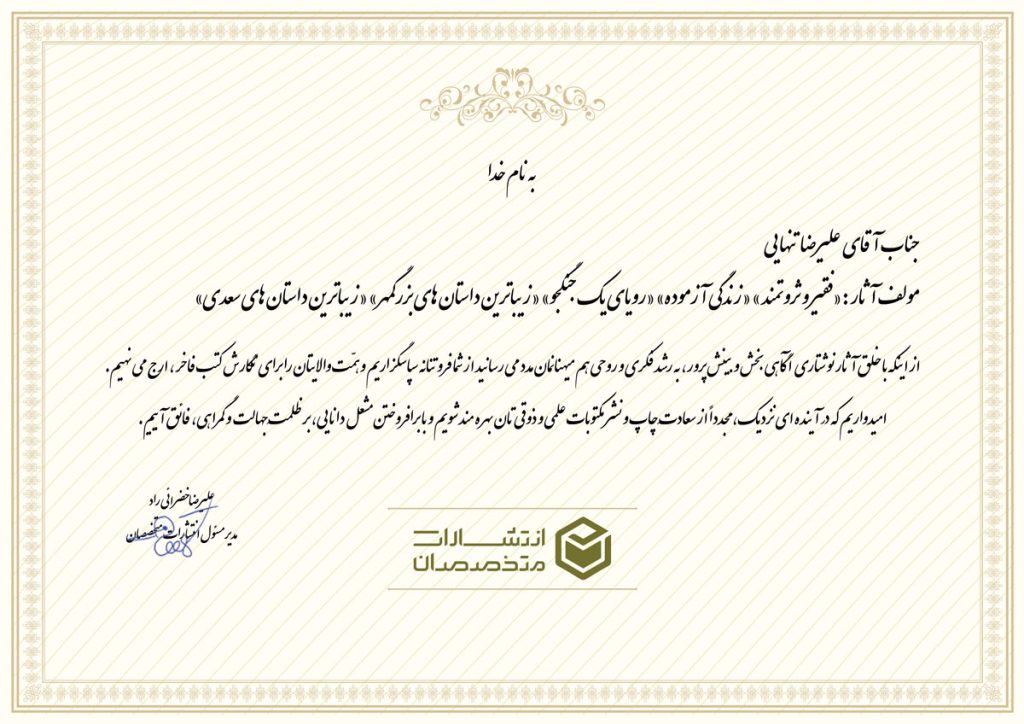 به نام خدا
جناب آقای علیرضا تنهایی
مولف آثار: «فقیر و ثروتمند» «زندگی آزموده» «رویای یک جنگجو» «زیباترین داستان های بزرگمهر» «زیباترین داستان های سعدی»
از اینکه با خلق آثار نوشتاری آگاهی بخش و بینش پرور، به رشد فکری و روحی هم میهنانمان مدد می رسانید از شما فروتنانه سپاسگزاریم و همّت والایتان را برای نگارش کتب فاخر، ارج می نهیم.
امیدواریم که در آینده ای نزدیک، مجدداً از سعادت چاپ و نشر مکتوبات علمی و ذوقی تان بهره مند شویم و با برافروختن مشعل دانایی، بر ظلمت جهالت و گمراهی، فائق آییم.
علیرضا خضرائی راد
مدیر مسئول انتشارات متخصصان
انتشارات
متخصصان